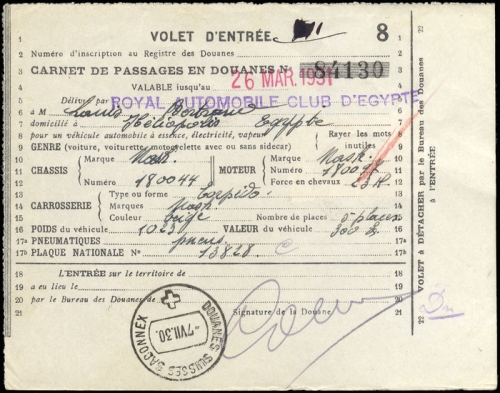 VOLET D'ENTRÉE 8
1
2 Numéro d'inscription au Registre des Douanes
3 CARNET DE PASSAGES EN DOUANES No 84130
4 VALABLE jusqu'au 26 MAR. 1931
5 Délivré par ROYAL AUTOMOBILE CLUB D'EGYPTE
6 à M Louis
7 domicilié à Héliopolis Egypte
8 pour un véhicule automobile à essence, électricité, vapeur Rayer les mots inutiles
9 GENRE (voiture, voiturette, motocyclette avec ou sans sidecar)
10 Marque Nash Marque Nash
11 CHASSIS MOTEUR Numéro 180044
12 Numéro 180044 Force en chevaux 23 H
13 Type ou forme torpédo
14 CARROSSERIE Marque Nash
15 Couleur beige Nombre de places 5 places
16 POIDS du véhicule 1023 VALEUR du véhicule 300 £
17a PNEUMATIQUES pneus 17a
17b PLAQUE NATIONALE No 13828 17b
18 L'ENTRÉE sur le territoire de 18
19 a eu lieu le 19
20 par le Bureau des Douanes de 20
21 Signature de la Douane 21
DOUANES SUISSES SACONNEX
-7 VII. 30.
22 VOLET à DÉTACHER par le Bureau des Douanes à L'ENTRÉE 22